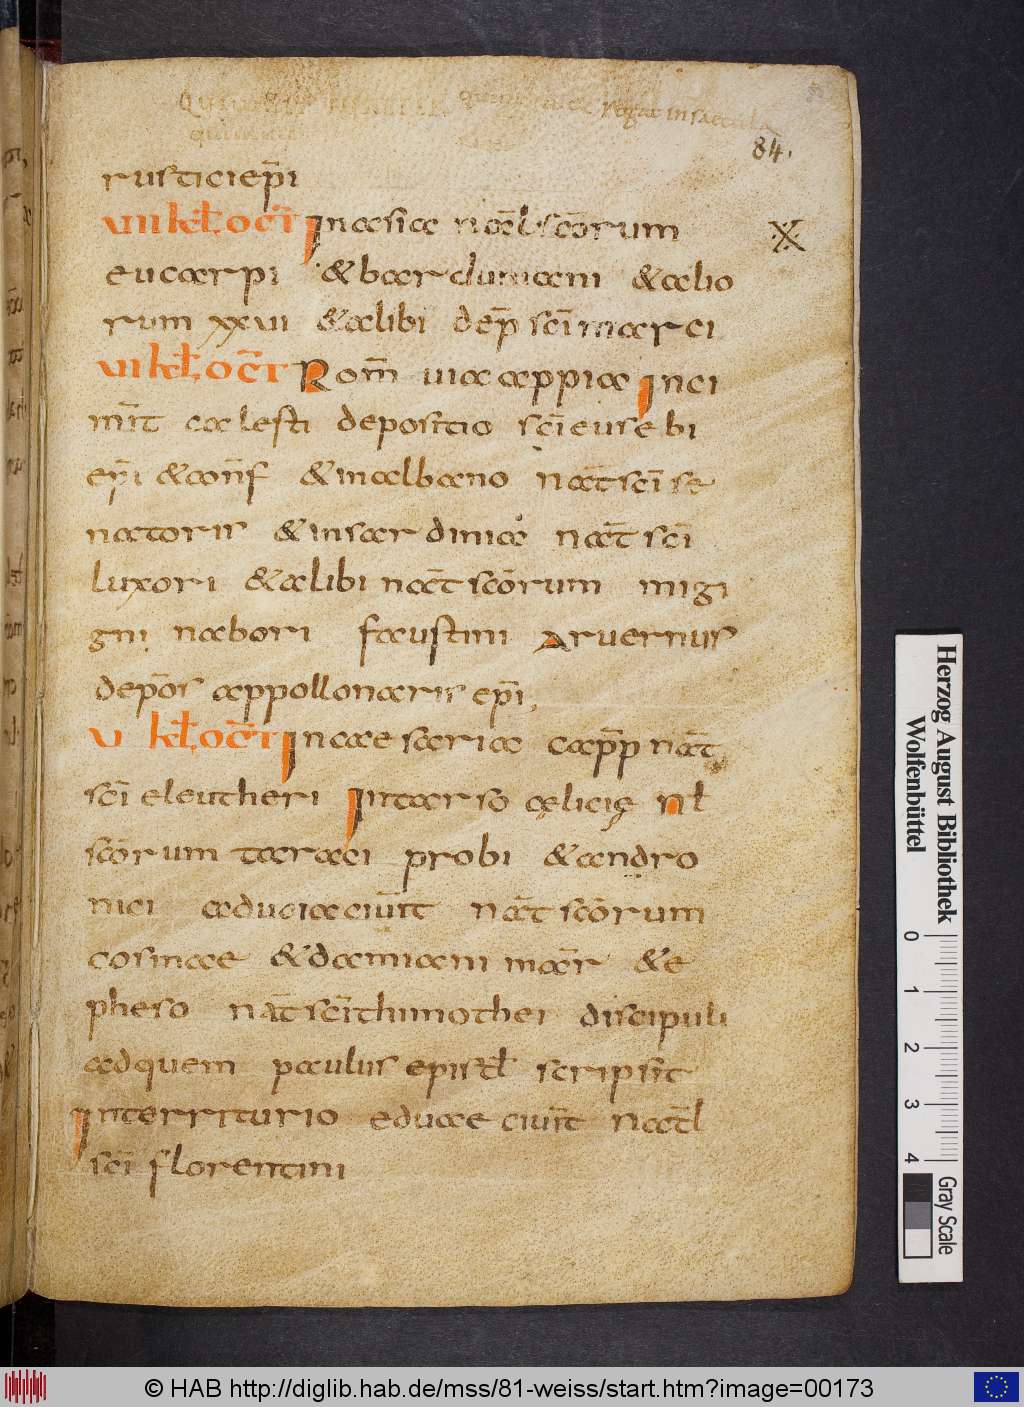 regat in saecula
84.
rusticiep̄i
VII kƚ. oct̄ Inasia nat̄l scōrum
eucarpi & bardumiani & alio
rum xxvi & alibi dep̄ scī marci
VI kƚ. oct̄ Rom̄ uia appia Inci
mit̄ caelesti depositio scī eusebi
ep̄i & con̄f & inalbano nat̄ scī se
natoris & insardinia nat̄ scī
luxori & alibi nat̄ scōrum migi
gni nabori faustini Aruernus
depōs appollonaris ep̄i,
V kƚ. oct̄ Incaesaria cap̄p nat̄
scī eleutheri Intarso cęlicię nƚ
scōrum taraci probi & andro
nici aduciaciuit̄ nat̄ scōrum
cosmae & damiani mar̄ & e
pheso nat̄ scī thimothei discipuli
adquem paulus epistƚ scripsit
Interriturio eduae ciuit̄ natƚ
scī florentini
Herzog August Bibliothek
Wolfenbüttel
0 1 2 3 4
Gray Scale
© HAB http://diglib.hab.de/mss/81-weiss/start.htm?image=00173